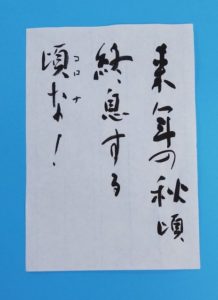 来年の秋頃
終息する
コロナ
頃な!